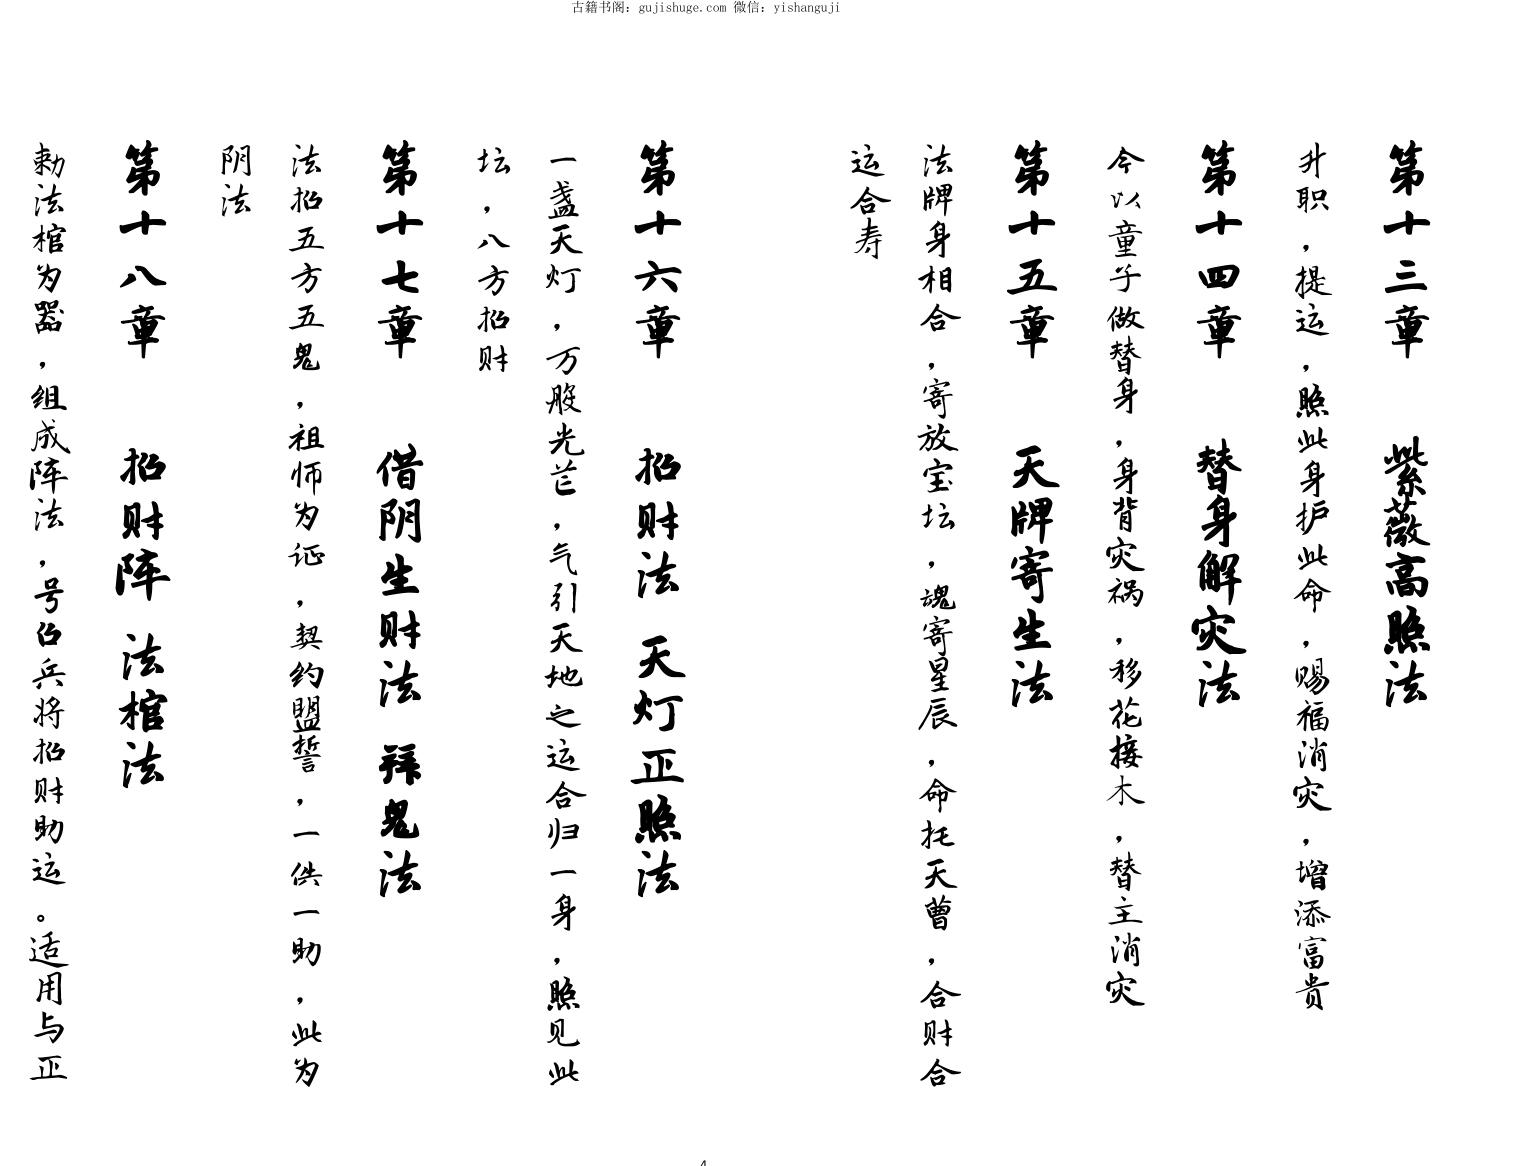 古籍书阁：gujishuge.com 微信：yishanguji
第十三章 紫薇高照法
升职，提运，照此身护此命，赐福消灾，增添富贵
第十四章 替身解灾法
今以童子做替身，身背灾祸，移花接木，替主消灾
第十五章 天牌寄生法
法牌身相合，寄放宝坛，魂寄星辰，命托天曹，合财合
运合寿
第十六章 招财法 天灯正照法
一盏天灯，万般光芒，气引天地之运合归一身，照见此
坛，八方招财
第十七章 借阴生财法 拜鬼法
法招五方五鬼，祖师为证，契约盟誓，一供一助，此为
阴法
第十八章 招财阵 法棺法
勅法棺为器，组成阵法，号召兵将招财助运。适用与正
4